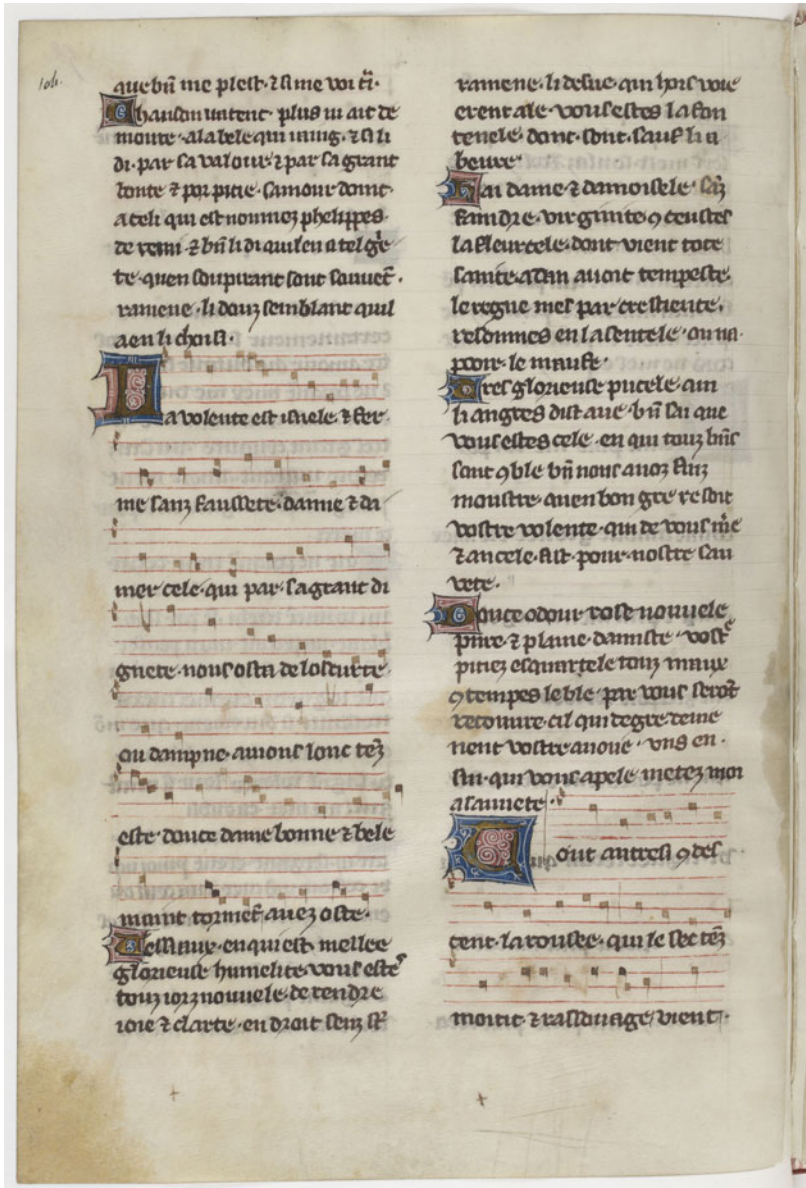 que bn̄ me plest. ⁊ si me voi cī.
Chanson vatent. plus ni ait de
monte. ala bele qui iniug. ⁊ si li
di. par sa valour ⁊ par sa grant
bonte ⁊ por pitie. samour doint.
a celi qui est nonmez phelippes.
de remi ⁊ bn̄ li di quil en a tel
te. quen soupirant sont souuet̄.
ramene. li douz semblant quil
a en li choisi.
La volente est isnele. ⁊ fer
me sanz fausсete. dame ⁊ da
mer cele. qui par. sa grant di
gnete. nous osta de loscurte.
ou dampne. auions lonc tēz
este. douce dame bonne ⁊ bele
maint tormēt auez oste.
De ssauz. en qui est. mellee
glorieuse humelite. vous este
touz iorz nouuele. de rendre
ioie ⁊ clarte. en droit senz
ramene. li desue. qui hors voie
erent ale. vous estes la fon
tenele. dont. sont. sauf li a
beure.
Hai dame ⁊ damoisele. sāz
faindre. virginite ꝯceustes
la fleur cele. dont vient tote
sainte. adan auoit tempeste.
le regne mes par crestiente.
resonnes en la sentele. ou na.
pooir. le maufe.
Tres glorieuse pucele. qui
li angres dist aue. bn̄ sai que
vous estes cele. en qui touz bn̄s
sont ꝯble bn̄ nous auoz
moustre. quen bon gre resoit
vostre volente. qui de vous
⁊ ancele. fist. pour. nostre sau
uete.
Douce odour rose nouuele
pure ⁊ plaine damiste. vostē
pitiez esquartele touz maux
ꝯtempes le ble. par vous serōt
recouure. cil qui de gre deme
nent vostre anoue. vns en.
sui. qui vous apele metez moi
a sauuete.
Tout autresi ꝯ des
cent. la rousee. qui le sec tēz
moitit. ⁊ rassouage. vient.